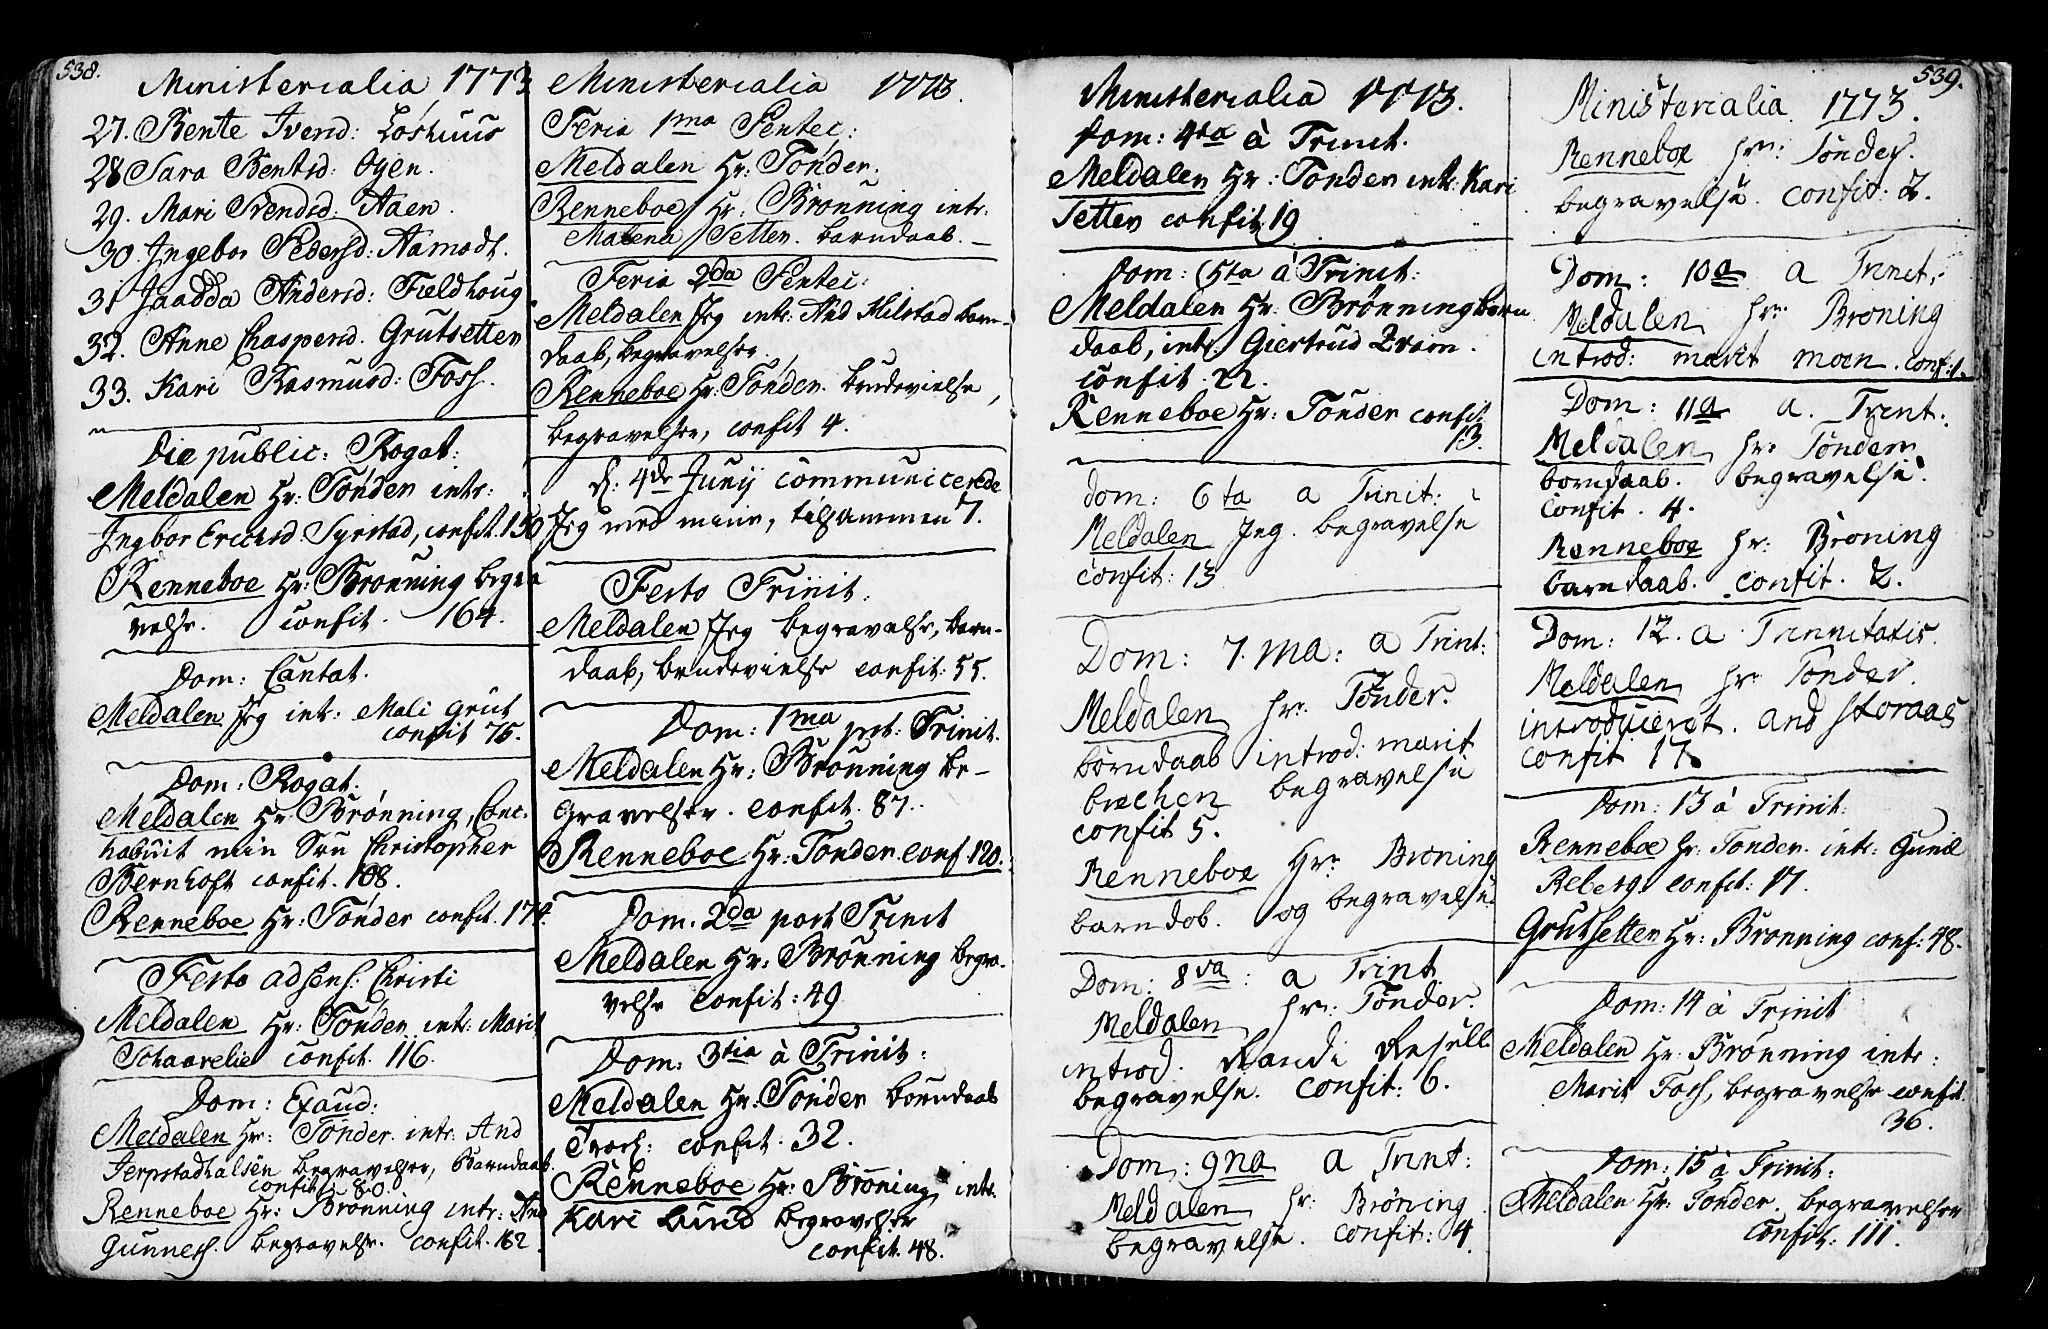 538.
Ministerialia 1773
27. Bente Iversd: Løshuus
28 Sara Bentsd: Oyen.
29. Mari Svendsd: Aaen.
30. Ingebor Pedersd: Aamodt.
31 Jaadda Andersd: Fieldhoug
32. Anne Chaspersd. Grutsetter
33. Kari Rasmusd: Foss.
Die public: Rogat:
Meldalen Hr: Tónder intr:
Ingbor Ericksd. Syrstad, confit. 150
Renneboe Hr: Brónning begra
velse. confit. 164.
Dom: Cantat.
Meldalen Jeg intr: Mali Grut
confit 75.
Dom: Rogat.
Meldalen Hr Brónning, Conc.
habuit min Søn Christopher
Bernhoft confit. 108.
Renneboe Hr: Tónder confit. 174.
Festo adsens: Christi
Meldalen Hr: Tónder intr: Marit
Schaarelie confit. 116.
Dom: Exaud:
Meldalen Hr: Tónder. intr: And
Jerpstadhalsen begravelser, Barndaab.
confit: 80.
Renneboe Hr: Brónning intr: And
Gunnes. begravelse. confit. 162.
Ministerialia 1773.
Feria 1ma Pentec:
Meldalen Hr: Tónder.
Renneboe Hr: Brónning intr:
Malena Setter. barndaab.
Feria 2da Pentec:
Meldalen Jeg intr: And Kilstad barn-
daab, begravelser.
Renneboe Hr: Tónder. brudevielse,
begravelser, confit 4.
d: 4de Junij communicerede
Jeg med mine, tilsammen 7.
Festo Trinit:
Meldalen Jeg begravelse, barn-
daab, brudevielse confit: 55.
Dom: 1ma post: Trinit.
Meldalen Hr: Brónning be-
gravelser. confit. 87.
Renneboe Hr: Tonder. conf. 120.
Dom. 2da post Trinit
Meldalen Hr: Brónning begra-
velse confit: 49
Dom: 3tia à Trinit:
Meldalen Hr: Tónder barndaab
Troel: confit. 32.
Renneboe Hr: Brónning intr.
Kari Lund begravelser
confit. 48.
Ministerialia 1773.
Dom: 4ta à Trinit.
Meldalen Hr: Tonder intr: Kari
Setter confit 19
Dom: 5ta à Trinit:
Meldalen Hr: Brónning barn
daab, intr: Giertrud Zvom.
confit. 22.
Renneboe Hr: Tónder confit
13.
Dom: 6ta a Trinit:
Meldalen Jeg. begravelse
confit: 13
Dom: 7.ma: a Trint:
Meldalen hr: Tønder.
børndaab introd: marit
bræchen begravelse
confit 5.
Renneboe Hr: Brøning
barndob. og begravelse.
Dom: 8va: a Trint
Meldalen hr: Tønder.
introd. Randi Resell
begravelse. confit: 6.
Dom: 9na a Trint:
Meldalen hr: Brøning
begravelse. confit: 4.
539.
Ministerialia. 1773.
Renneboe hr: Tønder.
begravelse. confit: 2.
Dom: 10a a Trinit:
Meldalen hr: Brøning
introd: marit moen. conf: 1.
Dom: 11a a. Trint:
Meldalen hr: Tønder
børndaab. begravelse.
confit. 4.
Renneboe hr: Brøning
barndaab. confit. 2.
Dom: 12. a Trinnitatis.
Meldalen hr: Tønder.
introduceret. and storaas
confit 17.
Dom: 13 à Trinit:
Renneboe hr: Tonder. intr: Guniel
Reberg. confit: 17.
Grutsetter Hr: Brónning conf: 48.
Dom: 14 à Trinit
Meldalen Hr: Brónning intr:
Marit Foss, begravelse confit.
36.
Dom: 15 à Trinit:
Meldalen Hr: Tonder. begravelser
Confit: 111.